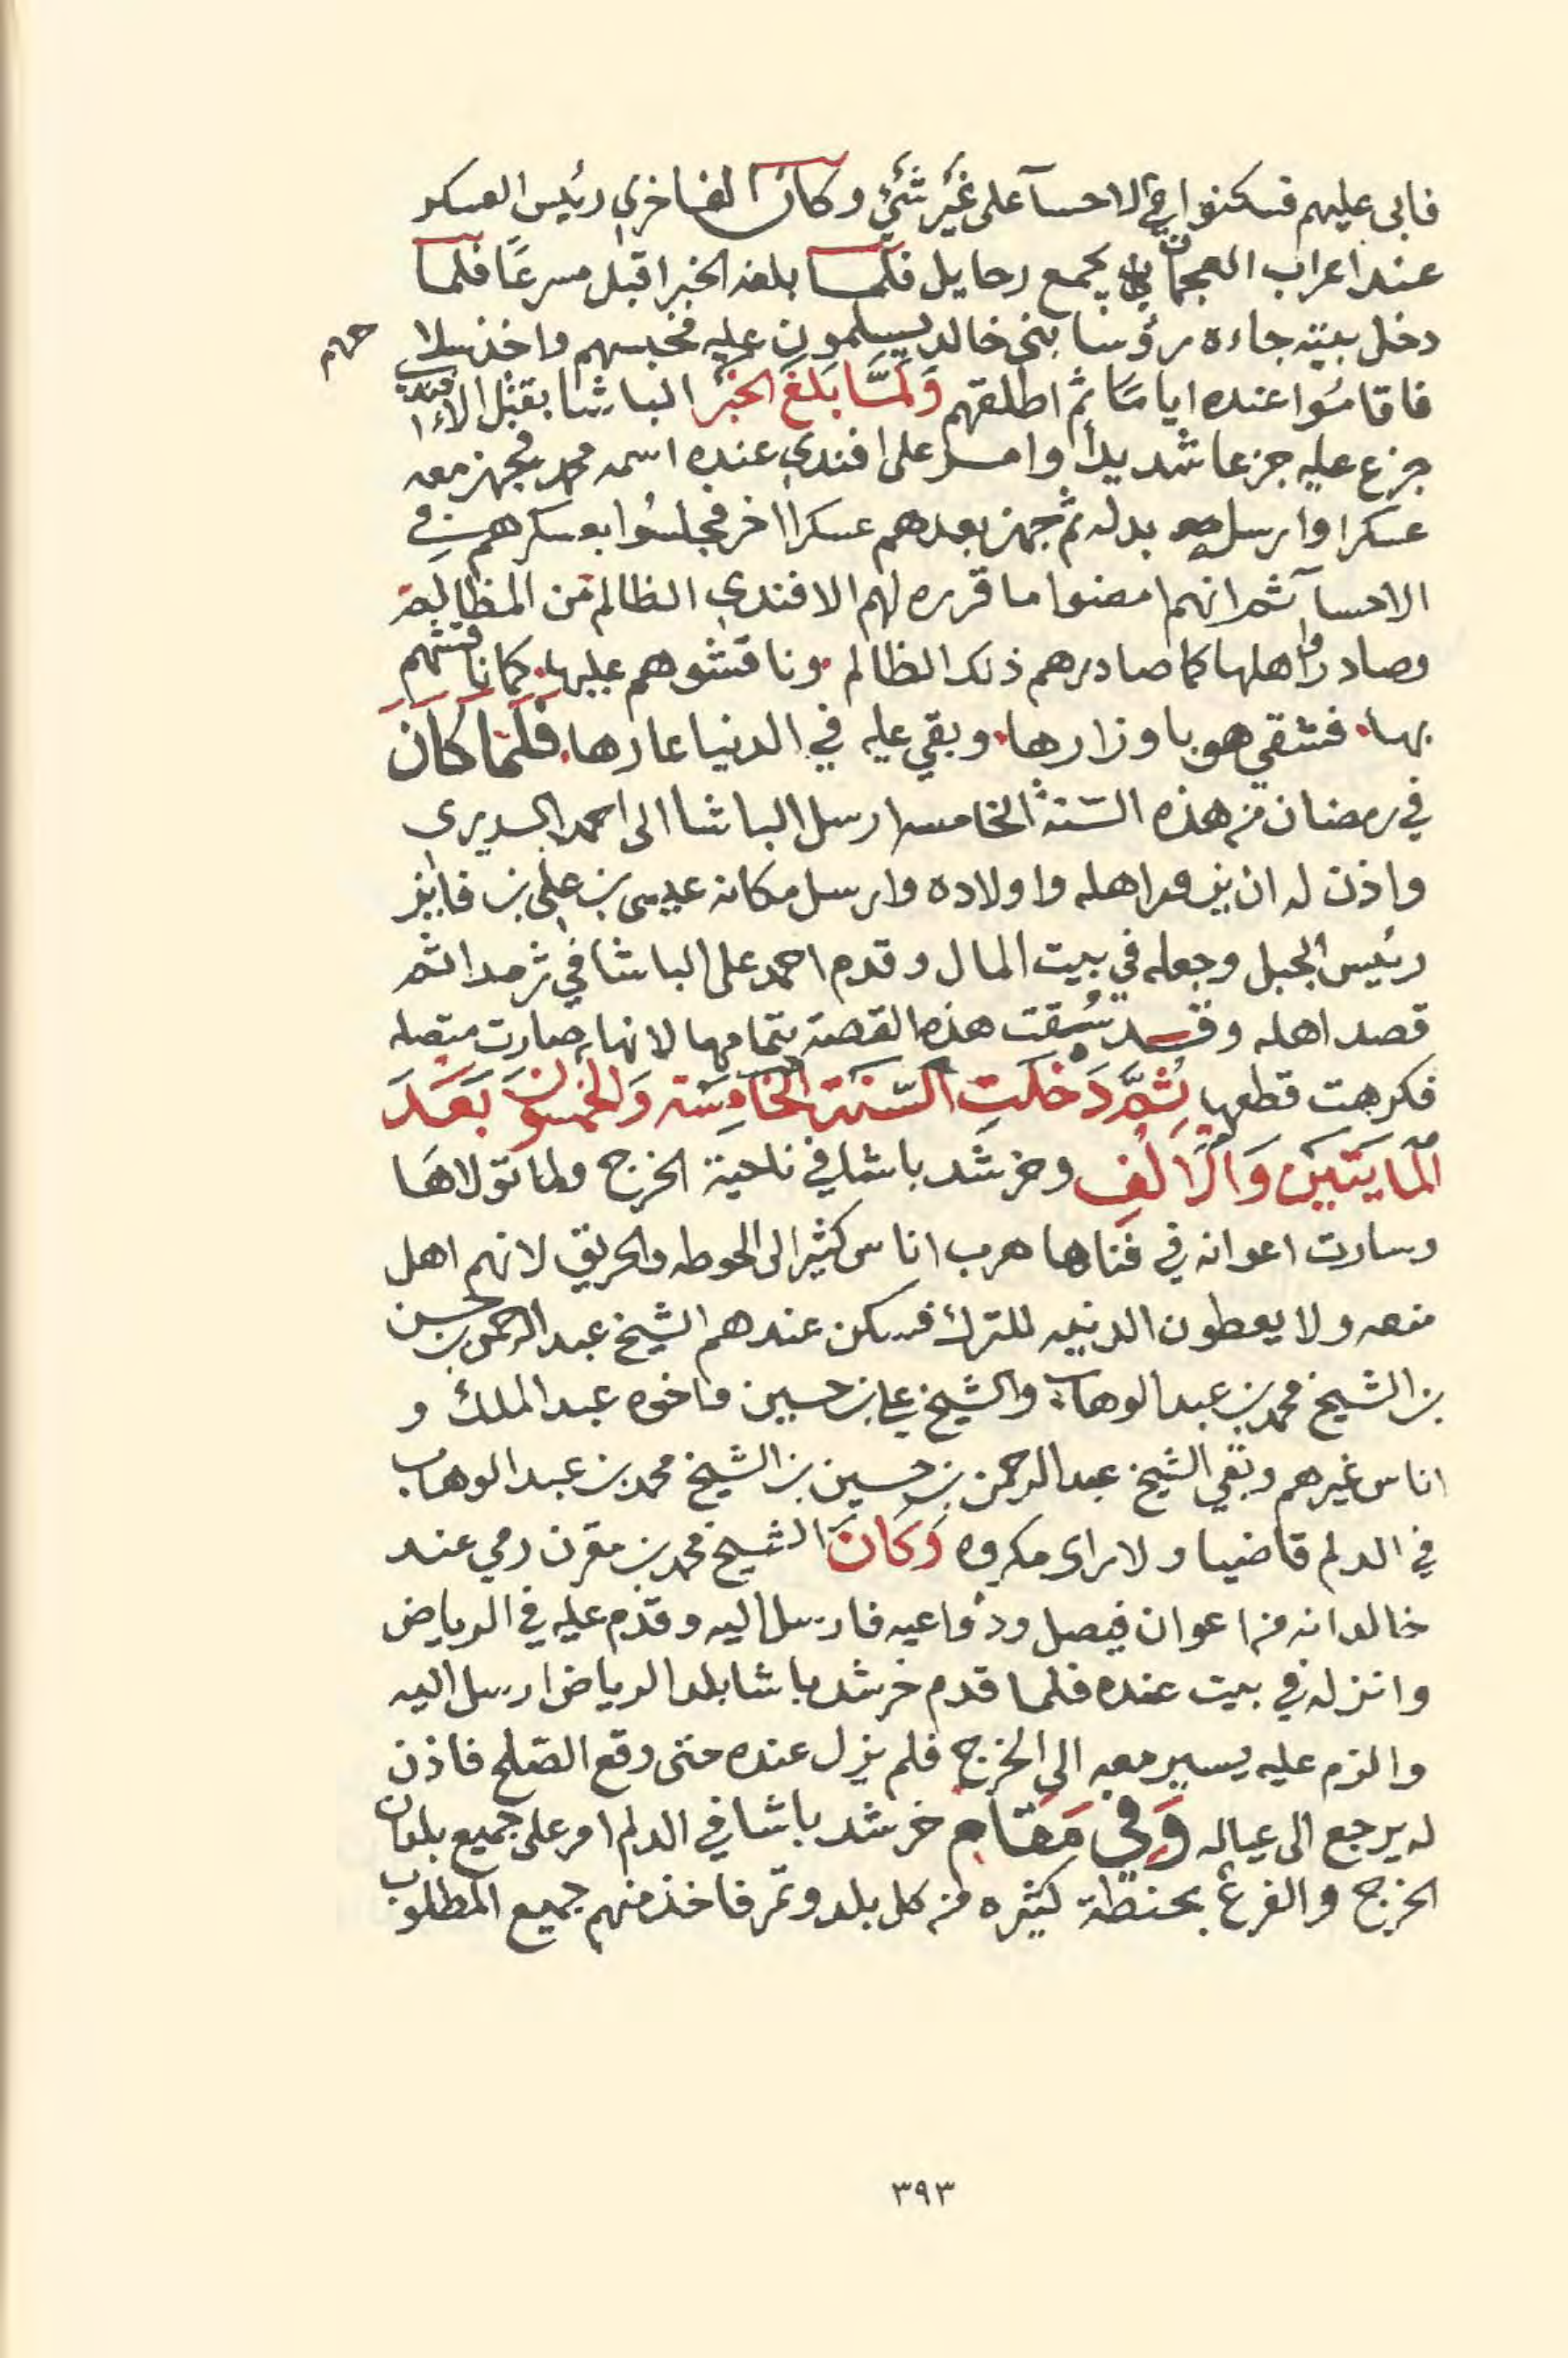 فابى عليهم فسكنوا في الاحسآ على غَيْر شَيْءٍ وكان الفاخري رئيس العسكر
عند اعراب العجمان يجمع رحايل فلما بلغه الخبر اقبل مسرعًا فلما
دخل بيته جاءه رؤسا بني خالد يسلمون عليه فحبسهم واخذ سلا
حهم
فاقامُوا عنده اياما ثم اطلقهم وَلَمَّا بَلَغَ الخبَر الباشا بقتل الافندي
جزع عليه جزعا شديدا وامر على افندي عنده اسمه محمد فجهز معه
عسكرا وارسله بدله ثم جهز بعدهم عسكرا اخر فجلسُوا بعسكرهم في
الاحسآ ثم انهم امضوا ما قرره لهم الافندي الظالم من المظالم
وصادروا اهلها كما صادرهم ذلك الظالم وناقشوهم عليها كما ناقشهم
بها فشقي هو باوزارها وبقي عليه في الدنيا عارها فَلَمَّا كَانَ
في رمضان من هذه السّنة الخامسه ارسل الباشا الى احمد السديري
واذن له ان ينحر اهله واولاده وارسل مكانه عيسى بن علي بن فايز
رئيس الجبل وجعله في بيت المال وقدم احمد على الباشا في ثرمدا ثم
قصد اهله وقد سُقت هذه القصة بتمامها لانها صارت متصله
فكرهت قطعها ثُمَّ دَخَلَتِ السَّنَة الخَامِسَة وَالخمسُون بَعَدَ
المَايَتَيْن وَالْاَلْفِ وخرشد باشا في ناحية الخرج ولما تولاهَا
وسارت اعوانه في فناها هرب اناس كثير الى الحوطه والحريق لانهم اهل
منعه ولا يعطون الدنيه للترك فسكن عندهم الشيخ عبد الرحمن بن حسن
بن الشيخ محمد بن عبد الوهاب والشيخ علي بن حسين واخوه عبد الملك و
اناس غيرهم وبقي الشيخ عبد الرحمن بن حسين بن الشيخ محمد بن عبد الوهاب
في الدلم قاضيا ولا راى مكروه وَكَانَ الشيخ محمد بن مقرن رمي عند
خالد انه من اعوان فيصل ودواعيه فارسل اليه وقدم عليه في الرياض
وانزله في بيت عنده فلما قدم خرشد باشا بلد الرياض ارسل اليه
والزم عليه يسير معه الى الخرج فلم يزل عنده حتى وقع الصّلح فاذن
له يرجع الى عياله وَفِي مَقَام خرشد باشا في الدلم امر على جميع بلدان
الخرج والفرع بحنطة كثيره من كل بلد وتمر فاخذ منهم جميع المطلوب
٣٩٣